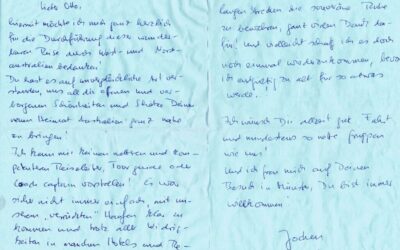 Liebe Otto,
hiermit möchte ich mich ganz herzlich
für die Durchführung dieser wunder-
baren Reise durch West- und Nord-
australien bedanken.
Du hast es auf unvergleichliche Art ver-
standen, uns all die offenen und ver-
borgenen Schönheiten und Schätze Deiner
neuen Heimat Australien ganz nahe
zu bringen!
Ich kann mir keinen netteren und kom-
petenteren Reiseleiter, Tour guide oder
Coach captain vorstellen! Es war
sicher nicht immer einfach, mit un-
serem "verrückten" Haufen klar zu
kommen und trotz aller Widrig-
keiten in manchen Hotels und
langen Strecken die souveräne Ruhe
zu bewahren, ganz vielen Dank da-
für! Und vielleicht schaff ich es doch
noch einmal wiederzukommen, bevor
ich endgültig zu alt für so etwas
werde.
Ich wünsch Dir allzeit gute Fahrt
und mindestens so nette Gruppen
wie uns!
Und ich freu mich auf Deinen
Besuch in Münster, Du bist immer
willkommen!
Jochen